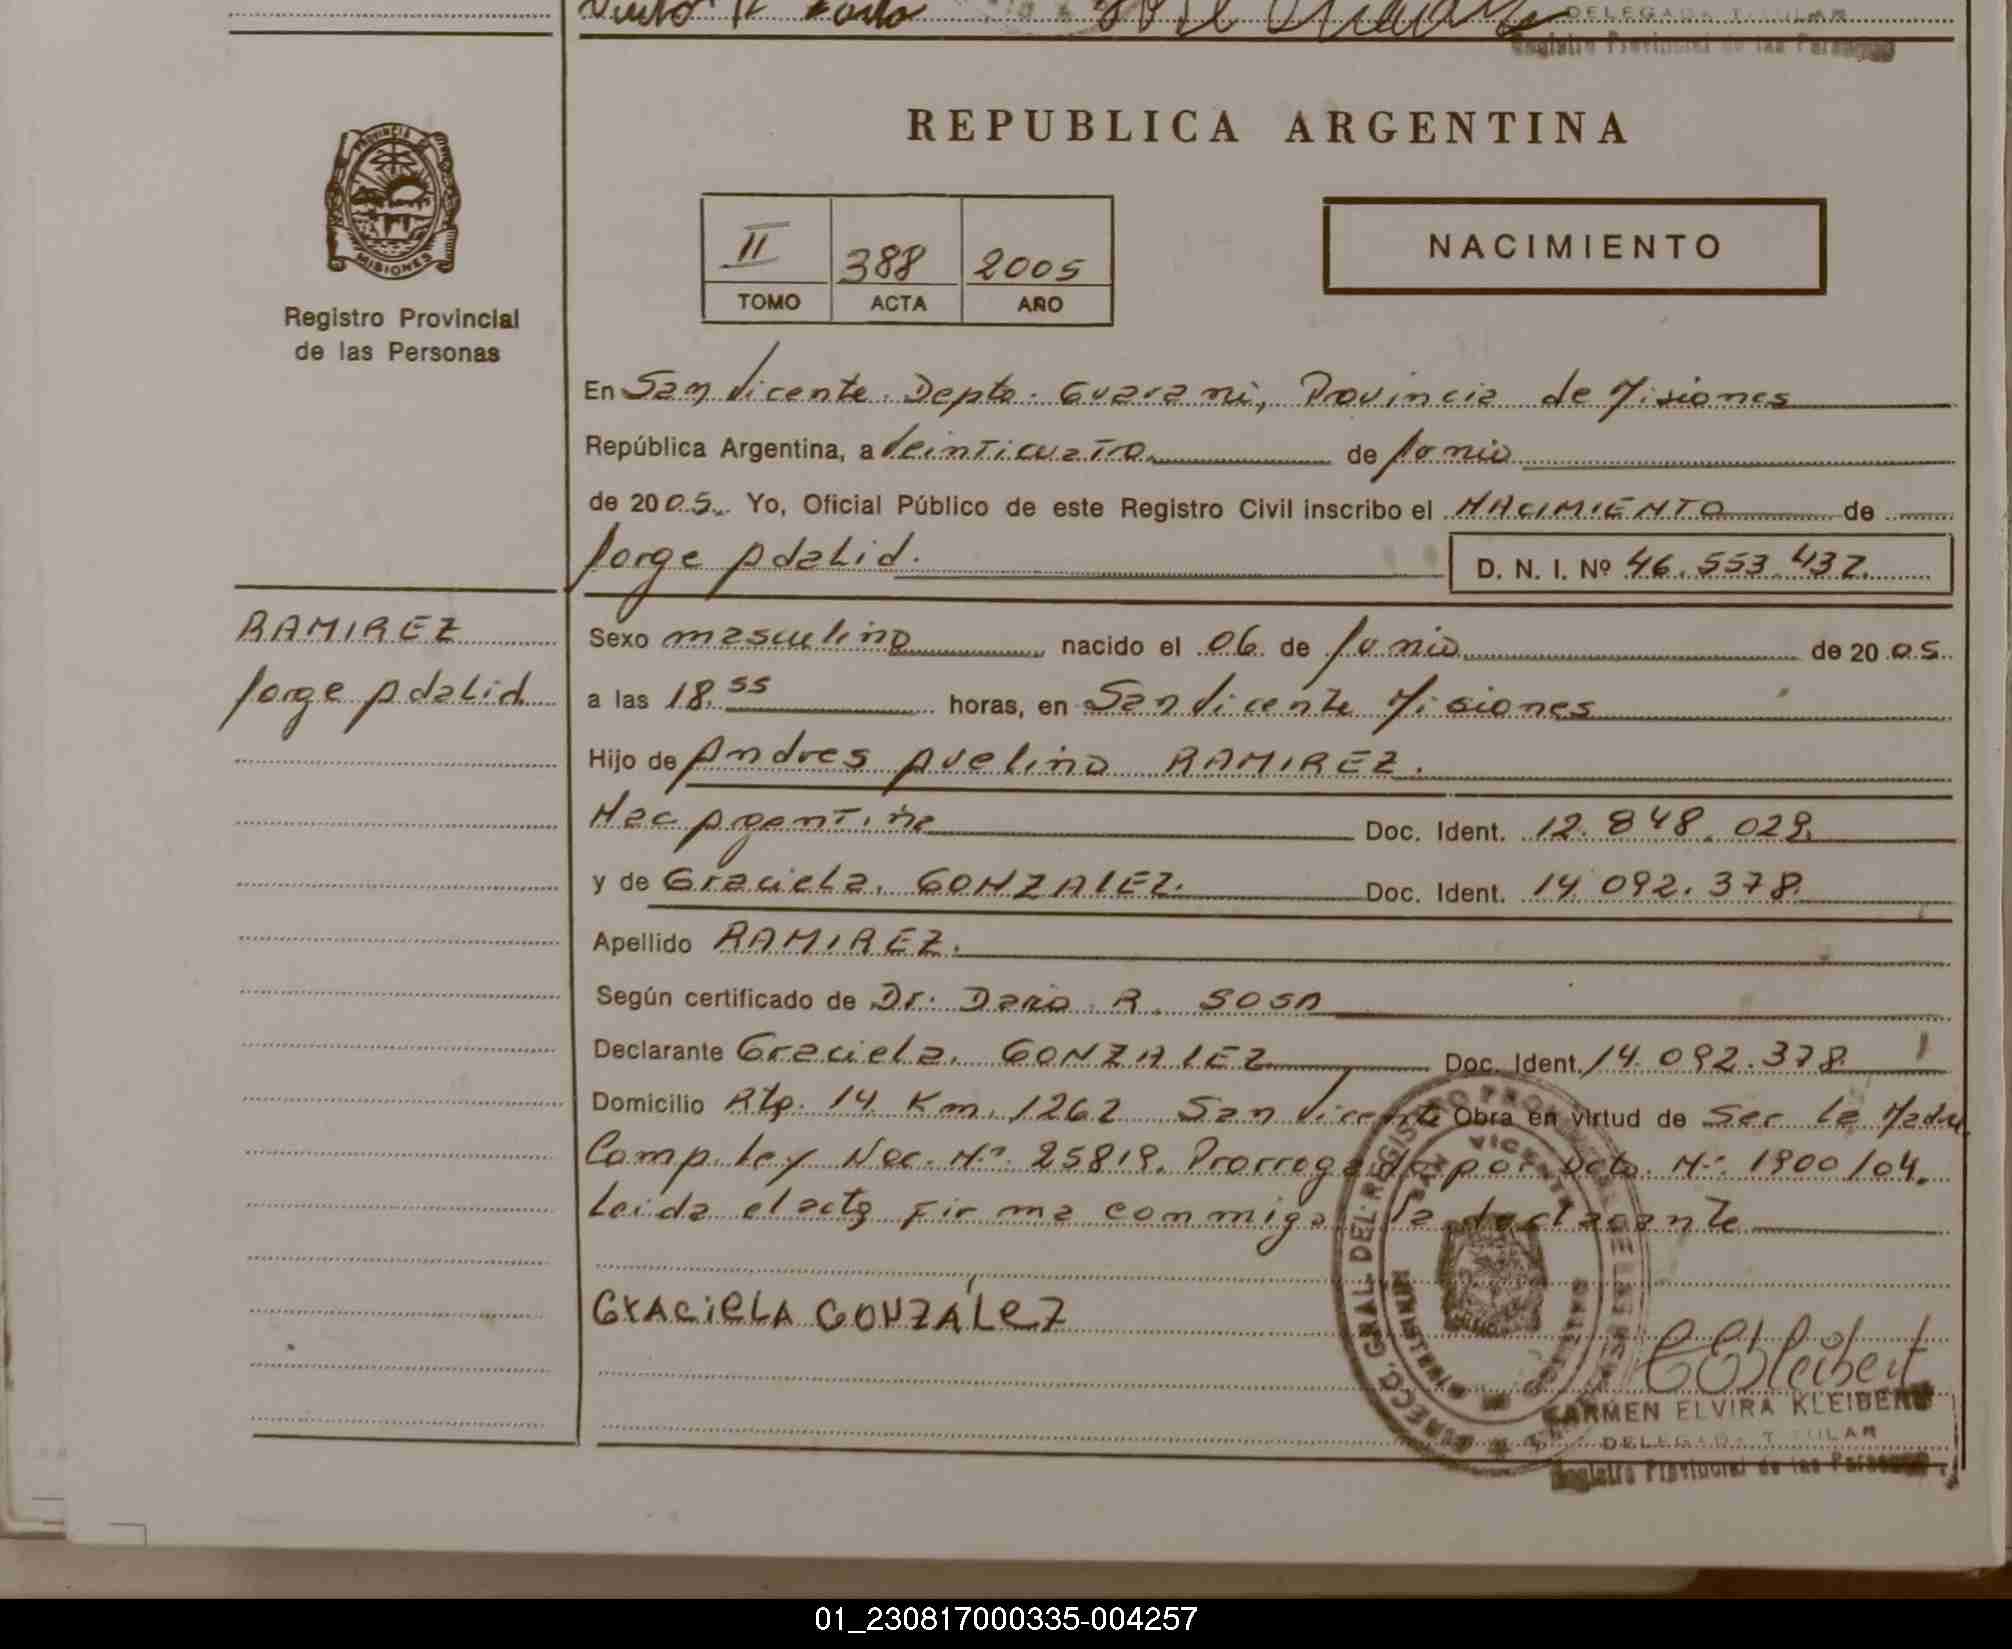 DELEGADA TITULAR
Registro Provincial de las Personas
PROVINCIA DE
MISIONES
Registro Provincial
de las Personas
REPUBLICA ARGENTINA
II 388 2005
TOMO ACTA AÑO
NACIMIENTO
En San Vicente. Depto. Guarani, Provincia de Misiones
República Argentina, a Veinticuatro de Junio
de 2005. Yo, Oficial Público de este Registro Civil inscribo el NACIMIENTO de
Jorge Adalid.
D. N. I. Nº 46.553.437.
RAMIREZ
Jorge Adalid
Sexo masculino nacido el 06 de Junio de 2005.
a las 18.55 horas, en San Vicente Misiones
Hijo de Andres Avelino RAMIREZ.
Nac Argentina Doc. Ident. 12.848.029.
y de Graciela. GONZALEZ. Doc. Ident. 14.092.378.
Apellido RAMIREZ.
Según certificado de Dr: Dario R. SOSA
Declarante Graciela. GONZALEZ Doc. Ident. 14.092.378.
Domicilio Rta. 14 Km. 1262 San Vicente Obra en virtud de Ser la Madre
Comp. Ley Nac. Nº 25819. Prorrogada por Dcto. Nº 1900/04.
Leida el acta Firma conmigo la declarante
GRACIELA GONZÁLEZ
DIRECC. GRAL. DEL REGISTRO PROVINCIAL DE LAS PERSONAS
SAN VICENTE
MINISTERIO DE GOBIERNO
CEKleibert
CARMEN ELVIRA KLEIBERT
DELEGADA TITULAR
Registro Provincial de las Personas
01_230817000335-004257